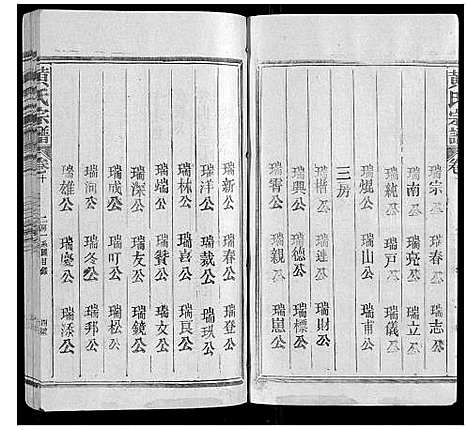 黃氏宗譜 卷十
瑞宗公 瑞春公 瑞志公
瑞南公 瑞亮公 瑞立公
瑞純公 瑞戶公 瑞儀公
瑞焜公 瑞山公 瑞甫公
三房
瑞楷公 瑞連公 瑞財公
瑞興公 瑞德公 瑞標公
瑞霄公 瑞親公 瑞崑公
瑞新公 瑞春公 瑞登公
瑞洋公 瑞裁公 瑞珙公
瑞林公 瑞喜公 瑞良公
瑞端公 瑞贊公 瑞文公
瑞深公 瑞友公 瑞鏡公
瑞成公 瑞叮公 瑞松公
瑞河公 瑞冬公 瑞邦公
瑞雄公 瑞慶公 瑞添公
黃氏宗譜 卷十 二房 系圖目錄